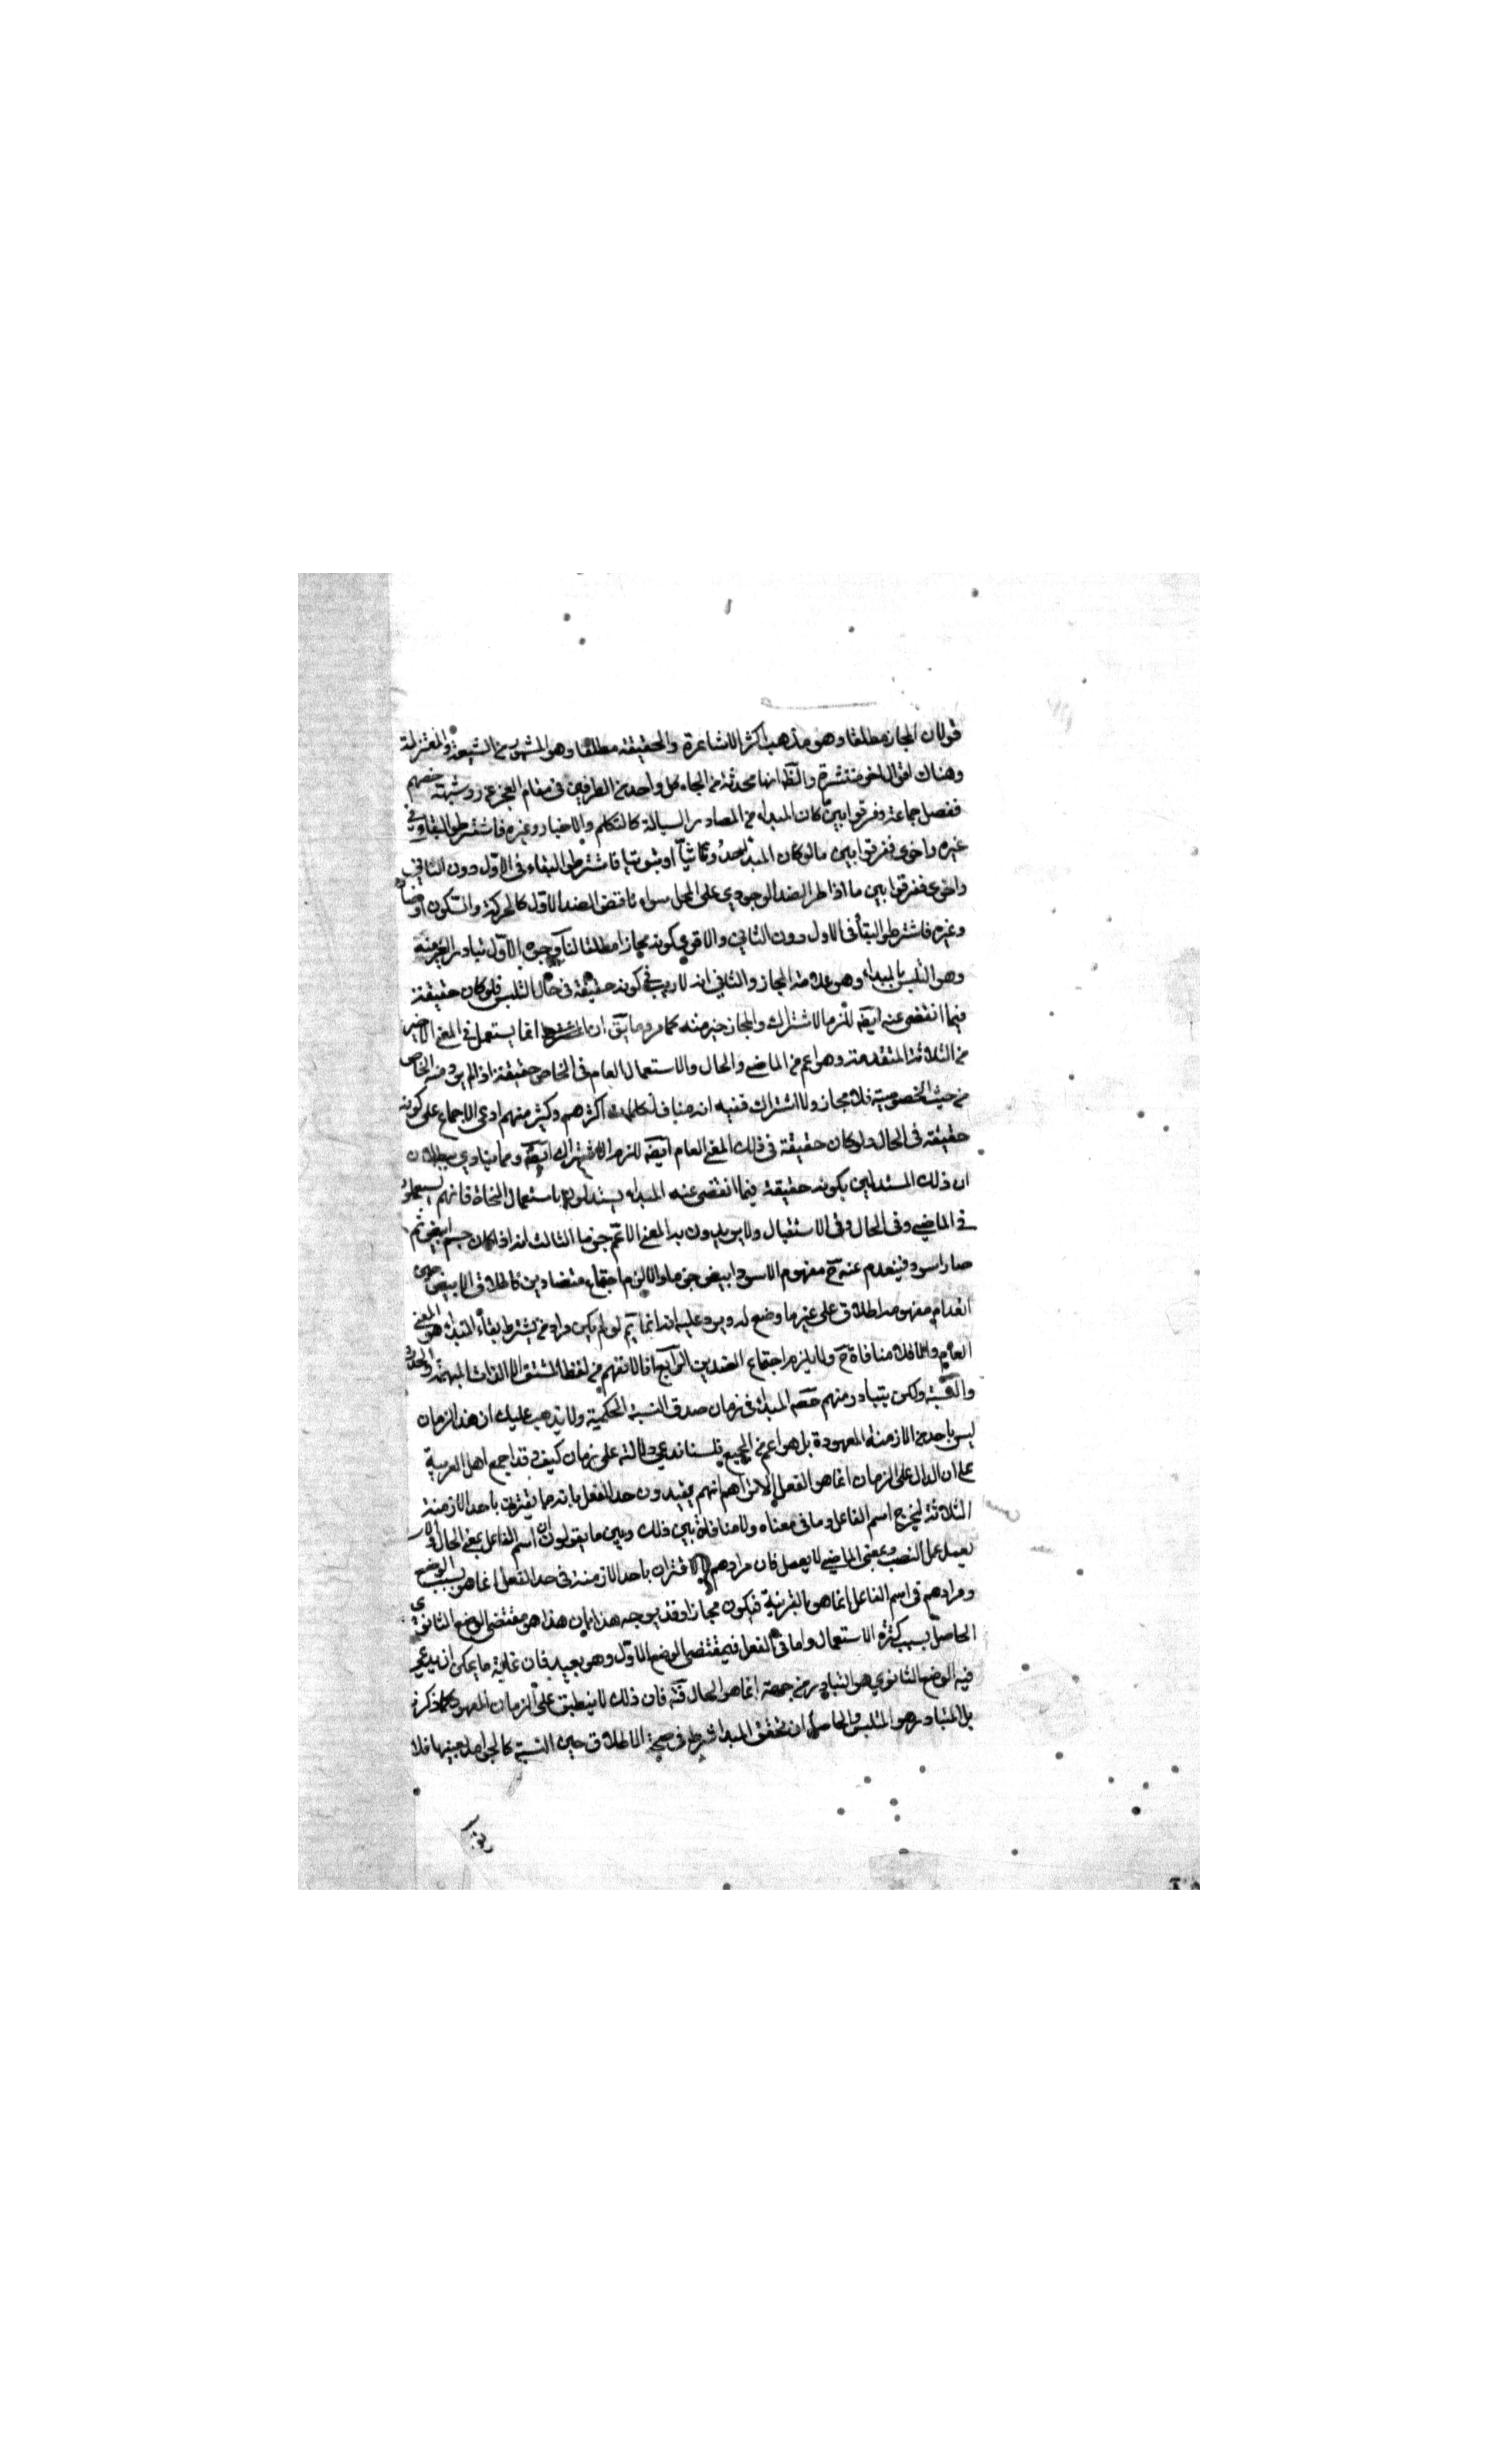 قولان المجاز مطلقا وهو مذهب اكثر الاشاعرة والحقيقة مطلقا وهو المشهور من الشيعة والمعتزلة
وهناك اقوال اخر منتشرة والظ انها محدثة من الجاء كل واحد من الطرفين في مقام العجز عن رد شبهة خصمهم
ففصل جماعة وفرقوا بين كان المبداء من المصادر السيالة كالتكلم والاخبار وغيره فاشترطوا البقاء في
غيره واخرى ففرقوا بين ما لو كان المبدء حدوثيا او ثبوتيا فاشترطوا البقاء في الاول دون الثاني
واخرى ففرقوا بين ما اذا طرء الضد الوجودي على المحل سواء ناقض الضد الاول كالحركة والسكون او ضاده
وغيره فاشترطوا البقاء في الاول دون الثاني والاقوى كونه مجازا مطلقا لنا وجوه الاول تبادر الغير منه
وهو التلبس بالمبداء وهو علامة المجاز والثاني انه لا ريب في كونه حقيقة في حال التلبس فلو كان حقيقة
فيما انقضى عنه ايضا للزم الاشتراك والمجاز خير منه كما مر وما يق ان انما يستعمل في المعنى الاخير
من الثلاثة المتقدمة وهو اعم من الماضي والحال والاستعمال العام في الخاص حقيقة اذا لم يرد منه الخاص
من حيث الخصوصية فلا مجاز ولا اشتراك ففيه انه مناف لكلمات اكثرهم وكثير منهم ادعى الاجماع على كونه
حقيقة في الحال ولو كان حقيقة في ذلك المعنى العام ايضا للزم الاشتراك ايضا ومما ينادي ببطلان
ان ذلك المستدلين بكونه حقيقة فيما انقضى عنه المبداء يستدلون باستعمال النحاة فانهم يستعملون
في الماضي وفي الحال وفي الاستقبال ولا يريدون به المعنى الاعم جزما الثالث انه اذا كان جسم ابيض ثم
صار اسود فينعدم عنه ح مفهوم الاسود ابيض جزما والا لزم اجتماع متضادين فاطلاق الابيض حين
انعدام مفهومه اطلاق على غير ما وضع له ويرد عليه انه انما يتم لو لم يكن مراد من يشترط بقاء المبدء هو المعنى
العام والا فلا منافاة ح ولا يلزم اجتماع الضدين الرابع انا لا نفهم من لفظ المشتق الا الذات المبهمة والحدث
والنسبة ولكن يتبادر منهم حصة المبدء في زمان صدق النسبة الحكمية ولا يذهب عليك ان هذا الزمان
ليس باحد من الازمنة المعهودة بل هو اعم من الجميع فلسنا ندعي دلالة على زمان كيف وقد اجمع اهل العربية
على ان الدال على الزمان انما هو الفعل الا تراهم انهم يقيدون حد الفعل بانه ما يقترن باحد الازمنة
الثلاثة ليخرج اسم الفاعل وما في معناه ولا منافاة بين ذلك وبين ما يقولون ان اسم الفاعل بمعنى الحال والاس
يعمل عمل النصب وبمعنى الماضي لا يعمل فان مرادهم الاقتران باحد الازمنة في حد الفعل انما هو بسبب الوضع
ومرادهم في اسم الفاعل انما هو بالقرينة فيكون مجازا وقد يوجه هذا بان هذا هو مقتضى الوضع الثانوي
الحاصل بسبب كثرة الاستعمال واما في الفعل فبمقتضى الوضع الاول وهو بعيد فان غاية ما يمكن ان يدعى
فيه الوضع الثانوي هو التبادر من جهة انما هو الحال فته فان ذلك لا ينطبق على الزمان المعهود كما ذكرنا
بل المتبادر هو المتلبس والحاصل ان تحقق المبدا شرط في صحة الاطلاق حين النسبة كالجوامد بعينها فلا